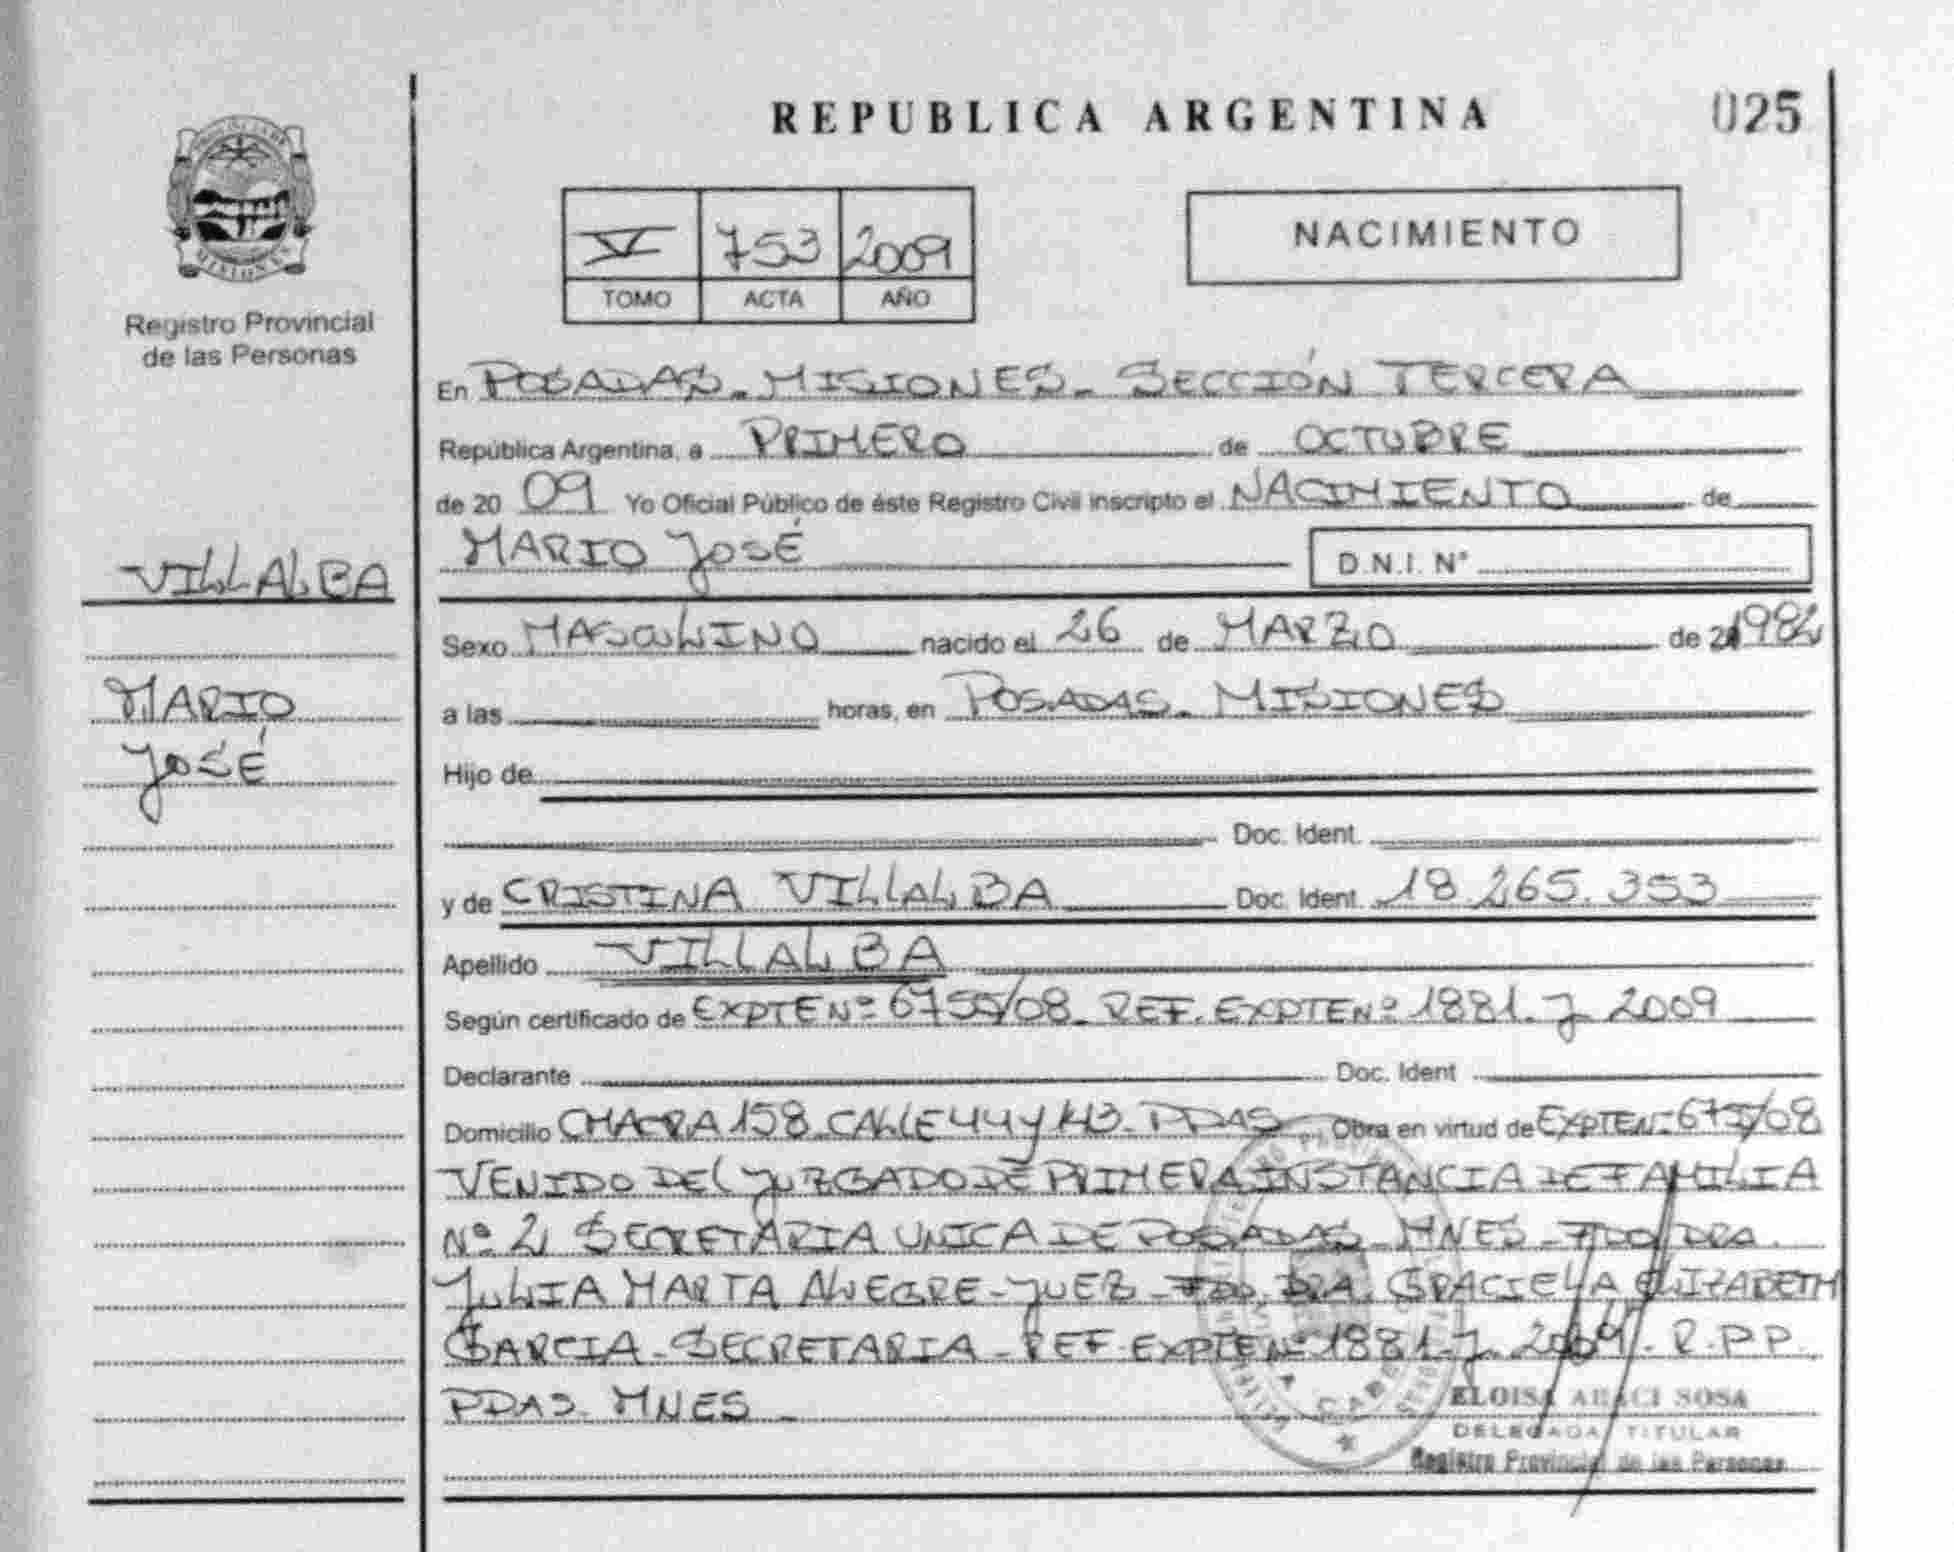 REPUBLICA ARGENTINA
025
MISIONES
Registro Provincial
de las Personas
V 753 2009
TOMO ACTA AÑO
NACIMIENTO
En POSADAS - MISIONES - SECCIÓN TERCERA
República Argentina, a PRIMERO de OCTUBRE
de 20 09 Yo Oficial Público de éste Registro Civil inscripto el NACIMIENTO de
MARIO JOSÉ D.N.I. N°
VILLALBA
MARIO
JOSÉ
Sexo MASCULINO nacido el 26 de MARZO de 1982
a las horas, en POSADAS - MISIONES
Hijo de
Doc. Ident.
y de CRISTINA VILLALBA Doc. Ident. 18.265.353
Apellido VILLALBA
Según certificado de EXPTE Nº 6755/08 - REF. EXPTE Nº 1881 - J - 2009
Declarante Doc. Ident
Domicilio CHACRA 158 - CALLE 44 y 143 - PDAS Obra en virtud de EXPTE Nº
VENIDO DEL JUZGADO DE PRIMERA INSTANCIA DE FAMILIA
Nº 2, SECRETARIA UNICA DE POSADAS - MNES - FDO DRA.
JULIA MARTA ALEGRE - JUEZ - FDO. DRA. GRACIELA ELIZABETH
GARCIA - SECRETARIA - REF. EXPTE Nº 1881 - J - 2009 - R.P.P.
PDAS - MNES -
ELOISA ARACI SOSA
DELEGADA TITULAR
Registro Provincial de las Personas